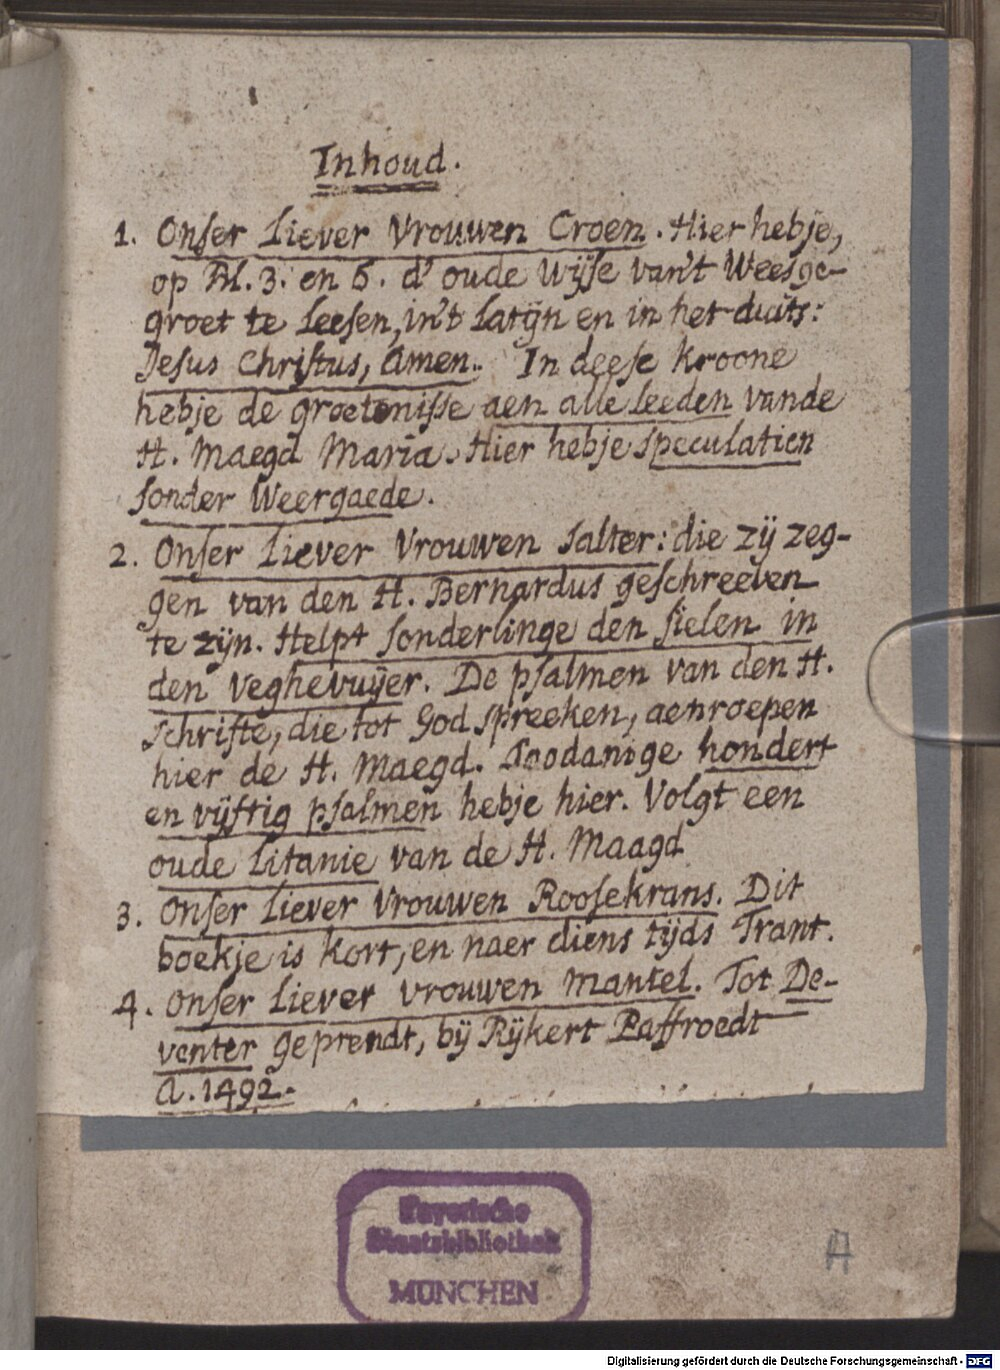 Inhoud.
1. Onser Liever Vrouwen Croen. Hier hebje,
op Bl. 3. en 6. d' oude wijse van't Weesge-
groet te leesen, in't Latijn en in het duits:
Jesus Christus, Amen. In deese kroone
hebje de groetenisse aen alle leeden vande
H. Maegd Maria. Hier hebje speculatien
sonder Weergaede.
2. Onser Liever Vrouwen Salter: die zij zeg-
gen van den H. Bernardus geschreeven
te zijn. Helpt sonderlinge den sielen in
den veghevuijer. De psalmen van den H.
Schrifte, die tot God spreeken, aenroepen
hier de H. Maegd. Soodanige hondert
en vijftig psalmen hebje hier. Volgt een
oude Litanie van de H. Maagd
3. Onser Liever Vrouwen Roosekrans. Dit
boekje is kort, en naer diens tijds Trant.
4. Onser Liever vrouwen mantel. Tot De-
venter geprendt, bij Rijkert Paffroedt
A. 1492.
Bayerische
Staatsbibliothek
MÜNCHEN
A
Digitalisierung gefördert durch die Deutsche Forschungsgemeinschaft - DFG